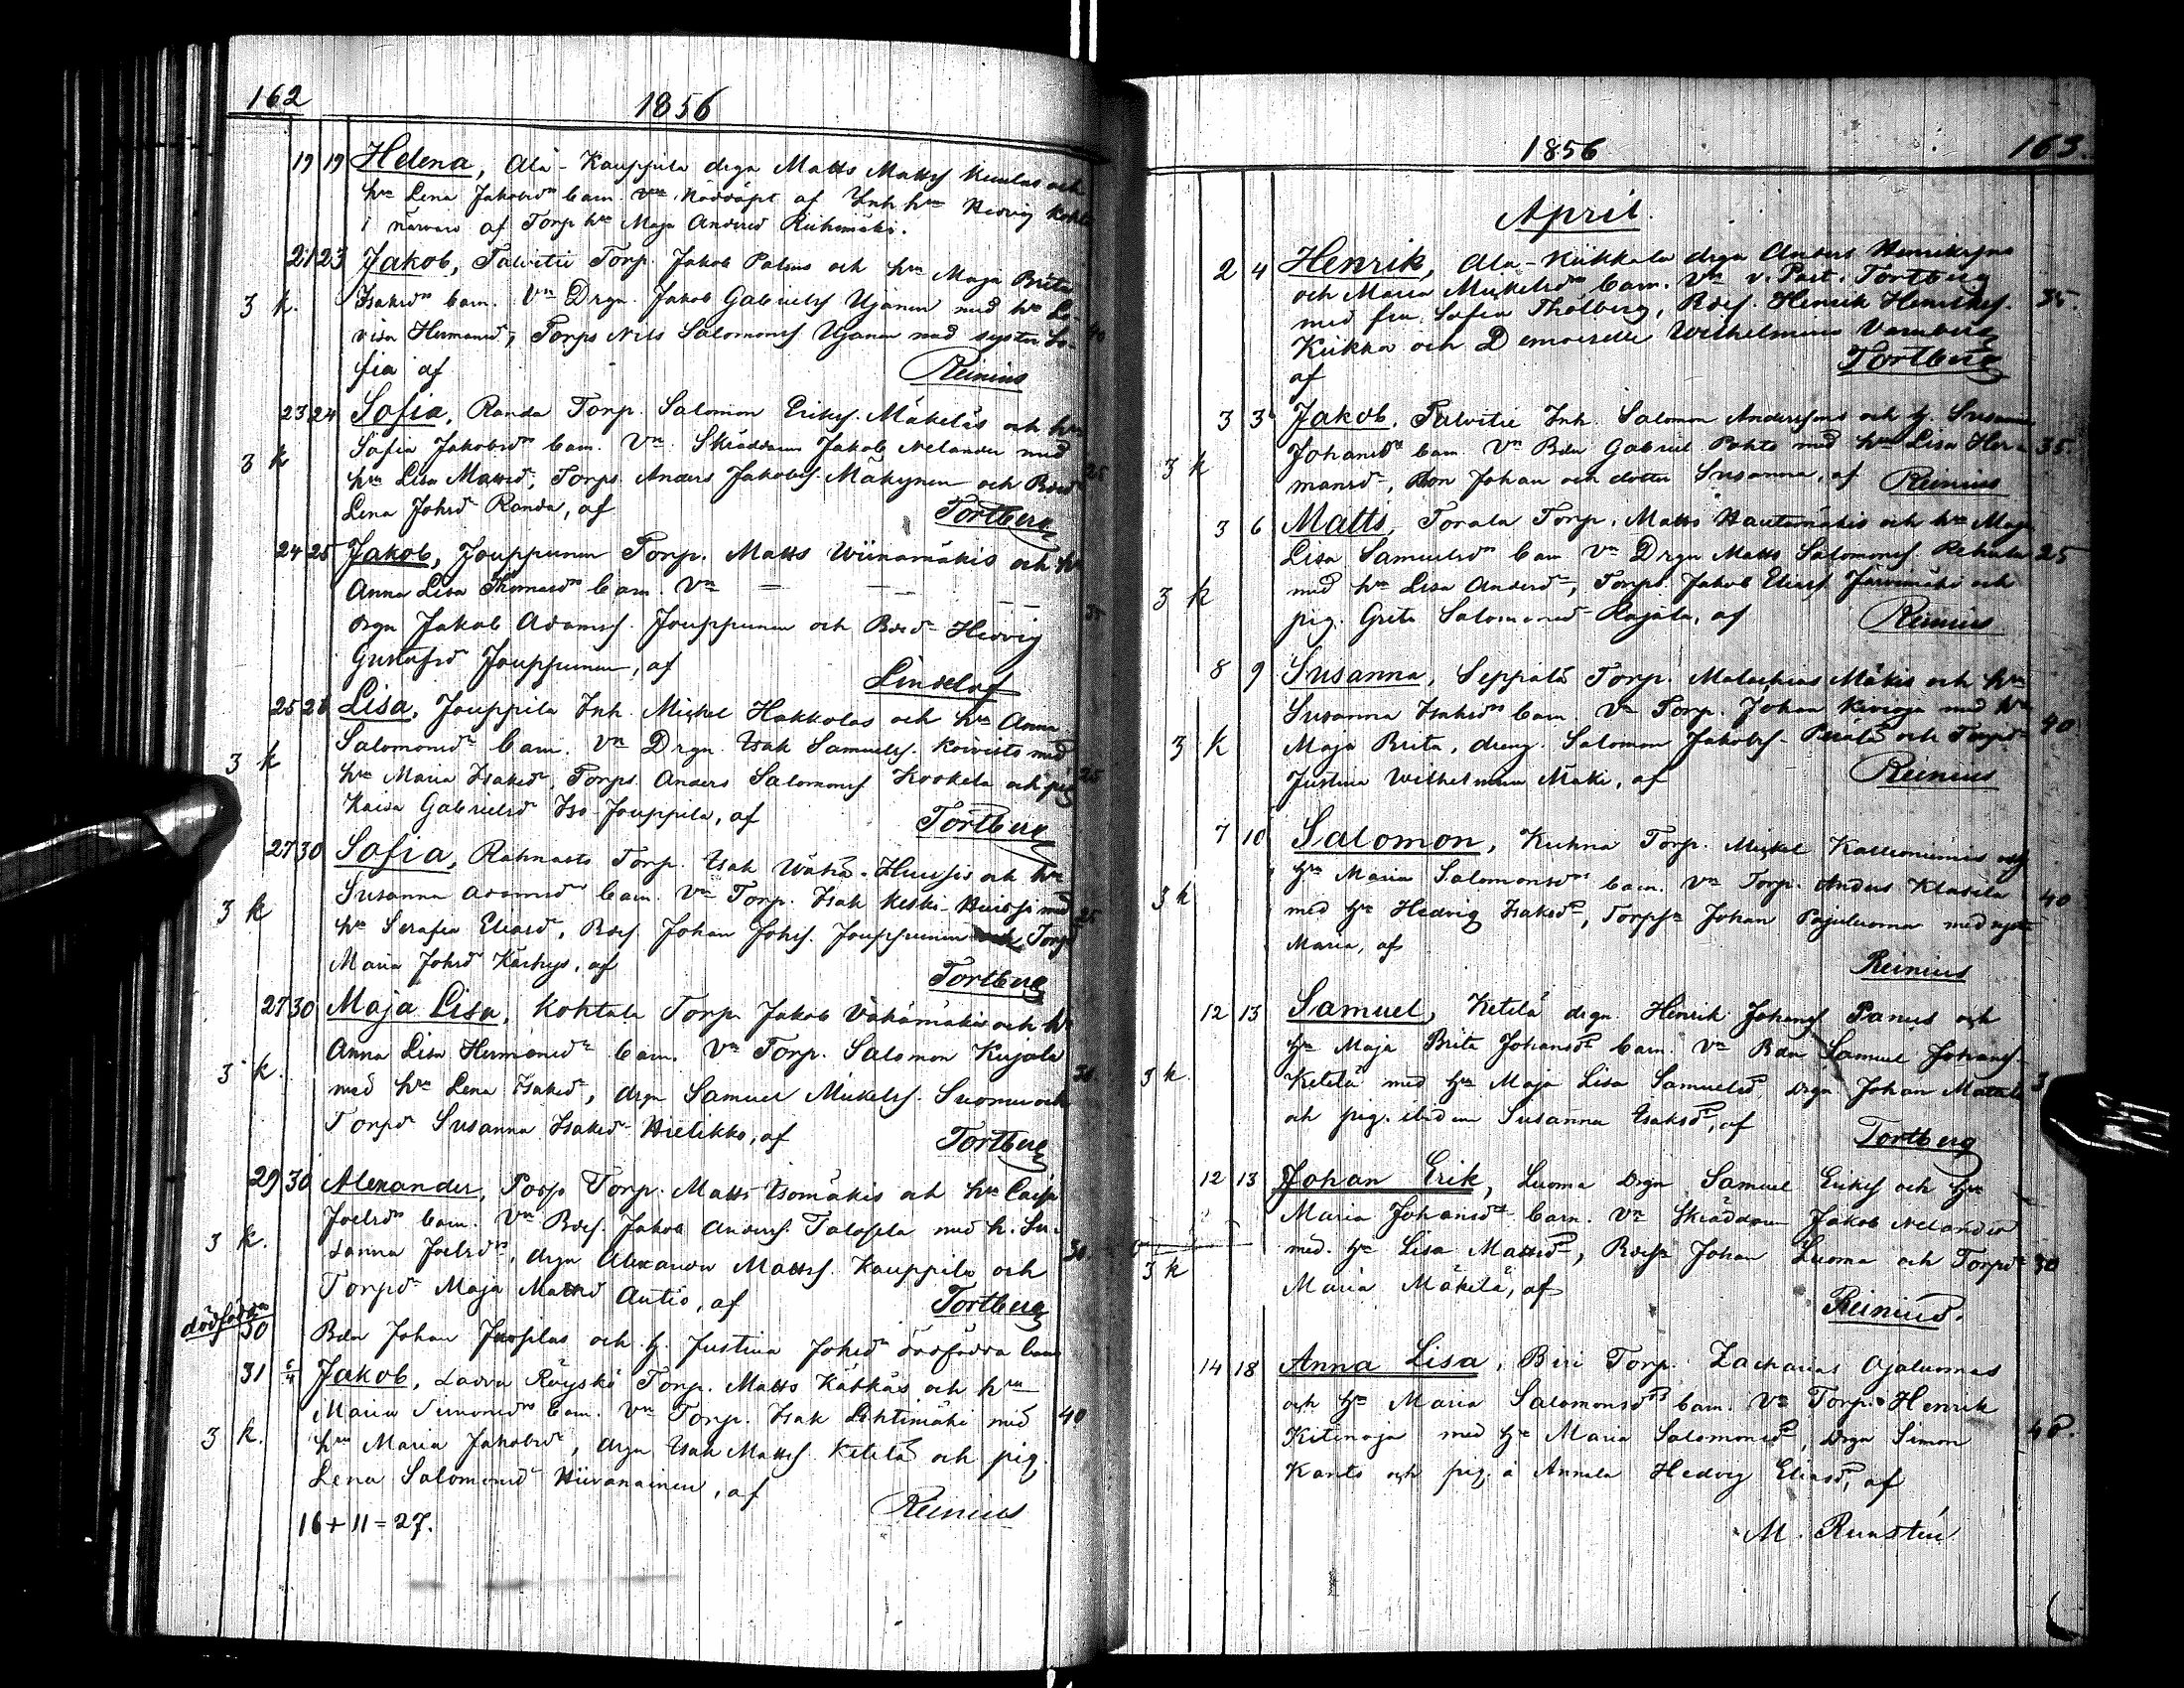 162
1856
19 19 Helena, Ala-Kauppila drgn Matts Matts och
hn Lena Jakobsdrs barn. Vn Nöddöpt af Inh hn Hedvig
i närvaro af Torp hn Maja Andersd Riihimäki.
21 23 Jakob, Talvitie Torp. Jakob Palmus och hn Maja Brita
3 k. Isaksdrs barn. Vn Drgn. Jakob Gabrielss Ujanen med hn Lo- 40
visa Hermansd, Torps Nils Salomonss Ujanen med syster So-
fia af Reinius
23 24 Sofia, Randa Torp. Salomon Erikss. Mäkeläs och hn
Sofia Jakobsdrs barn. Vn. Skräddaren Jakob Nelander med
3 k hn Lisa Mattsd, Torps. Anders Jakobss. Mäkynen och Bosd 25
Lena Johsd Randa, af Tortberg
24 25 Jakob, Jouppunen Torp. Matts Wiinamäkis och hn
Anna Lisa Thomasdrs barn. Vn = — —
drgn Jakob Adamss. Jouppunen och Bosd Hedvig 35
Gustafsd Jouppunen, af Lindelöf
25 26 Lisa, Jouppila Inh. Mickel Hakkolas och hn Anna
Salomonsdr barn. Vn Drgn. Isak Samuelss. Koivisto med
3 k hn Maria Isaksd, Torps. Anders Salomonss Kookela och pig 25
Kaisa Gabrielsd Iso-Jouppila, af Tortberg
27 30 Sofia, Rahnasto Torp. Isak Wähä-Huissis och hn
Susanna Adamsdrs barn. Vn Torp. Isak Keski-Huissi med
3 k hn Serafia Eliasd, Boss Johan Johss. Jouppunen och Torpd 25
Maria Johsd Kärhys, af Tortberg
27 30 Maja Lisa, Kohtala Torp. Jakob Vähämäkis och hn
Anna Lisa Hermansdr barn. Vn Torp. Salomon Kujala
3 k. med hn Lena Isaksd, drgn Samuel Mickelss. Suomu och 30.
Torpd Susanna Isaksd Hietikko, af Tortberg
29 30 Alexander, Poops Torp. Matts Isomäkis och hn Caisa
Joelsdrs barn. Vn Boss. Jakob Anderss. Talosela med h. Su-
3 k. sanna Joelsdr, drgn Alexander Mattss. Kauppila och 30.
Torpd Maja Mattsd Autio, af Tortberg
dödfödda
30 Bdn Johan Juopilas och h. Justina Johsdr dödfödda barn
31 6/4 Jakob, Ladva Röyskö Torp. Matts Kätkäs och hn
Maria Simonsdrs barn. Vn Torp. Isak Lehtimäki med 40
3 k. hn Maria Jakobsd, drgn Isak Mattss. Ketelä och pig.
Lena Salomonsd Hiivanainen, af Reinius
16 + 11 = 27.
1856
163.
April.
2 4 Henrik, Ala-Kiikkala drgn Anders Henrikssons
och Maria Mickelsdrs barn. Vn v. Past. Tortberg
med fru Sofia Thölberg, Boss. Henrik Henrikss. 35.
Kiikka och Demoiselle Wilhelmina
af Tortberg
3 3 Jakob, Talvitie Inh. Salomon Anderssons och h. Susanna
Johansdr barn. Vn Bdn Gabriel Pohto med hn Lisa Her- 35.
3 k mansd, Son Johan och dotter Susanna, af Reinius
3 6 Matts, Torala Torp. Matts Hautamäkis och hn Maja
Lisa Samuelsdrs barn Vn Drgn Matts Salomonss. 25
3 k med hn Lisa Andersd, Torps. Jakob Eliass Järvimäki och
pig. Greta Salomonsd Rajala, af Reinius
8 9 Susanna, Seppälä Torp. Malachias Mäkis och hn
Susanna Isaksdrs barn. Vn Torp. Johan Kivioja med hn
3 k Maja Brita, dreng. Salomon Jakobss. Perälä och Torpd 40
Justina Wilhelmina Mäki, af Reinius
7 10 Salomon, Kuhna Torp. Mickel Kallioniemis och
hn Maria Salomonsdrs barn. Vn Torp. Anders Klasila
3 k med hn Hedvig Isaksd, Torpsn Johan Pajuluoma med syster 40
Maria, af
Reinius
12 13 Samuel, Ketelä drgn. Henrik Johanss Panus och
hn Maja Brita Johansdrs barn. Vn Bdn Samuel Johanss.
3 k. Ketelä med hn Maja Lisa Samuelsd, drgn Johan Mattila 3
och pig. ibidem Susanna Isaksd, af
Tortberg
12 13 Johan Erik, Luoma Drgn Samuel Erikss och hn
Maria Johansdrs barn. Vn Skräddaren Jakob Nelander
med. hn Lisa Mattsd, Bossn Johan Luoma och Torpdr 30
3 k Maria Mäkelä, af
Reinius.
14 18 Anna Lisa, Biri Torp. Zacharias Ojaluomas
och hn Maria Salomonsdrs barn. Vn Torp. Henrik
Kitinoja med hn Maria Salomonsd, drgn Simon 40.
Kanto och pig. å Annala Hedvig Eliasd, af
M. Runsten